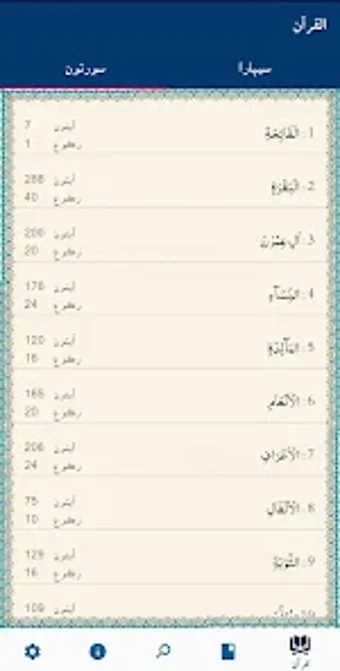 القرآن
سيپارا
سورتون
1 : الْفَاتِحَةِ
آيتون 7
رڪوع 1
2 : الْبَقَرَةِ
آيتون 286
رڪوع 40
3 : اٰلِ عِمْرٰنَ
آيتون 200
رڪوع 20
4 : النِّسَآءِ
آيتون 176
رڪوع 24
5 : الْمَآئِدَةِ
آيتون 120
رڪوع 16
6 : الْاَنْعَامِ
آيتون 165
رڪوع 20
7 : الْاَعْرَافِ
آيتون 206
رڪوع 24
8 : الْاَنْفَالِ
آيتون 75
رڪوع 10
9 : التَّوْبَةِ
آيتون 129
رڪوع 16
آيتون 109
قرآن